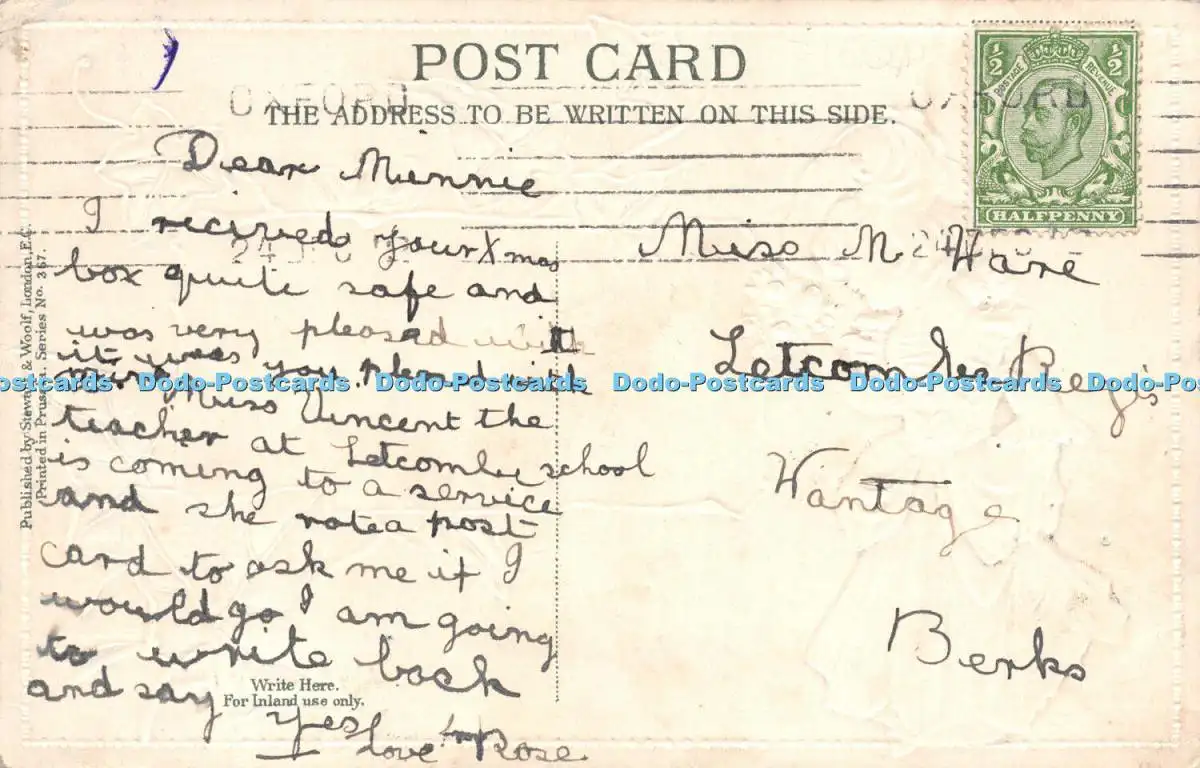 POST CARD
OXFORD
OXFORD
THE ADDRESS TO BE WRITTEN ON THIS SIDE.
½ ½
POSTAGE REVENUE
HALFPENNY
Dear Minnie
I recieved your Xmas
box quite safe and
was very pleased with
it was you pleased with
Miss Vincent the
teacher at Letcombe school
is coming to a service
and she rote a post
card to ask me if I
would go I am going
to write back
and say
Yes
love from Rose
Write Here.
For Inland use only.
Miss M Hare
Letcombe Regis
Wantage
Berks
Published by Stewart & Woolf, London, E.C.
Printed in Prussia. Series No. 367.
Dodo-Postcards Dodo-Postcards Dodo-Postcards Dodo-Postcards